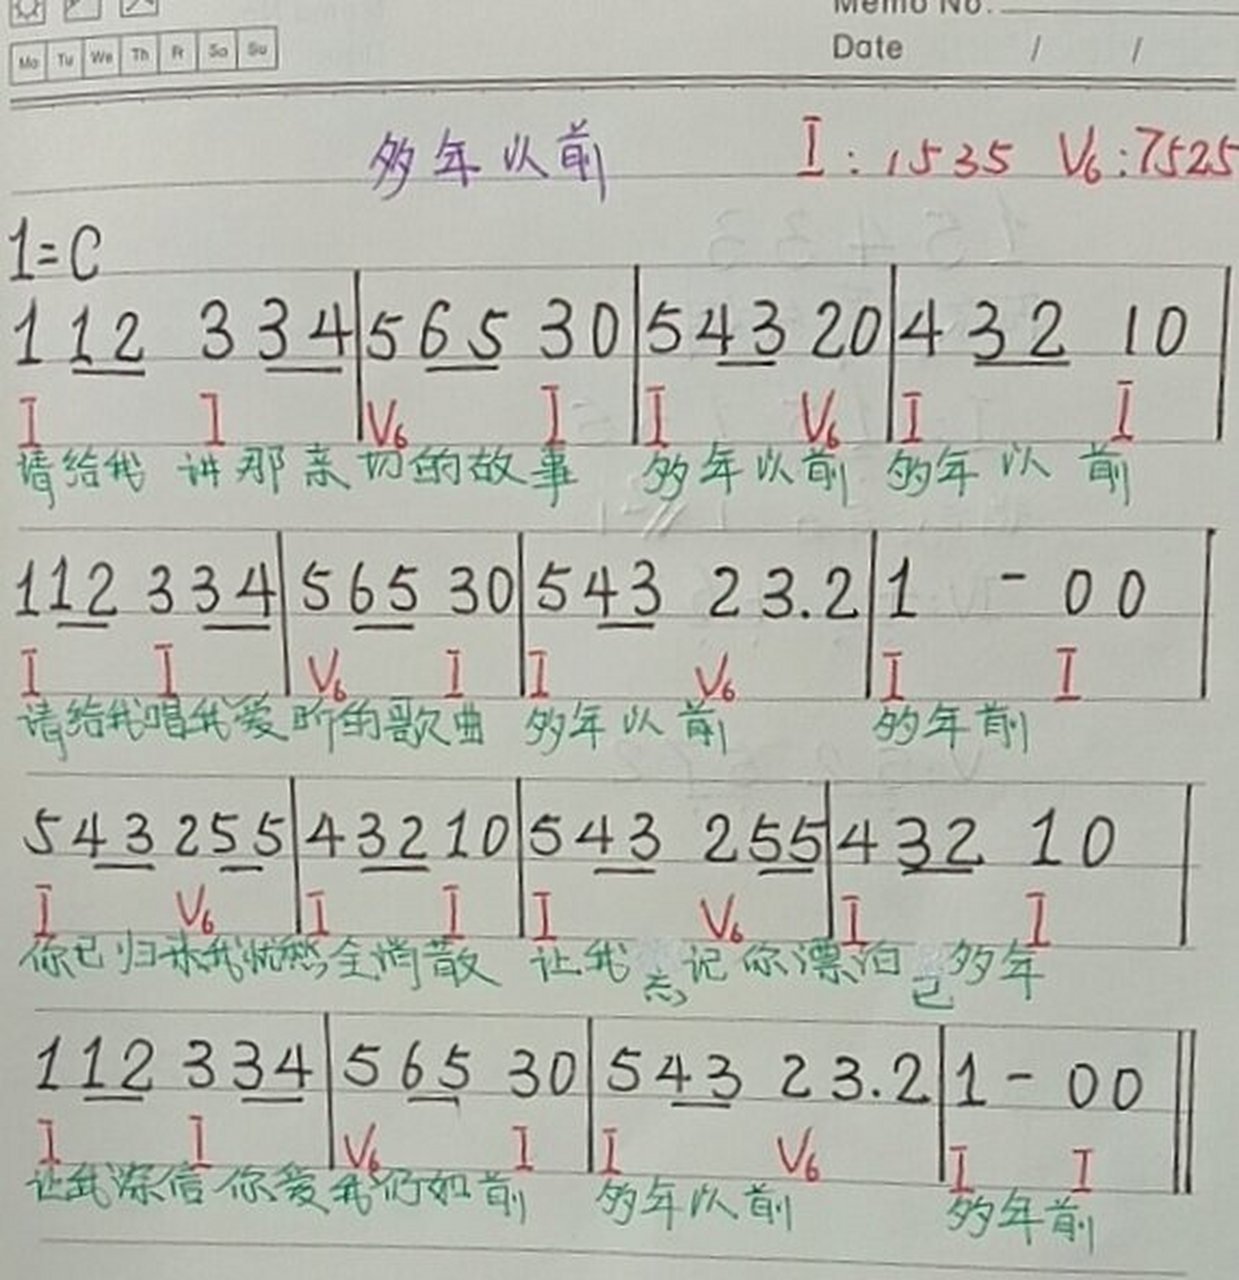 Memo No.
Mo Tu We Th Fr Sa Su
Date / /
多年以前 I:1535 V6:7525
1=C
1 12 3 34|5 65 30|5 43 20|4 32 10|
I I V6 I I V6 I I
请给我 讲那亲切的故事 多年以前 多年以前
112 334|5 65 30|5 43 23.2|1 - 00|
I I V6 I I V6 I I
请给我唱我爱听的歌曲 多年以前 多年前
543 255|43210|543 255|432 10|
I V6 I I I V6 I I
你已归来我忧愁全消散 让我忘记你漂泊已多年
112 334|565 30|543 23.2|1 - 00||
I I V6 I I V6 I I
让我深信你爱我仍如前 多年以前 多年前